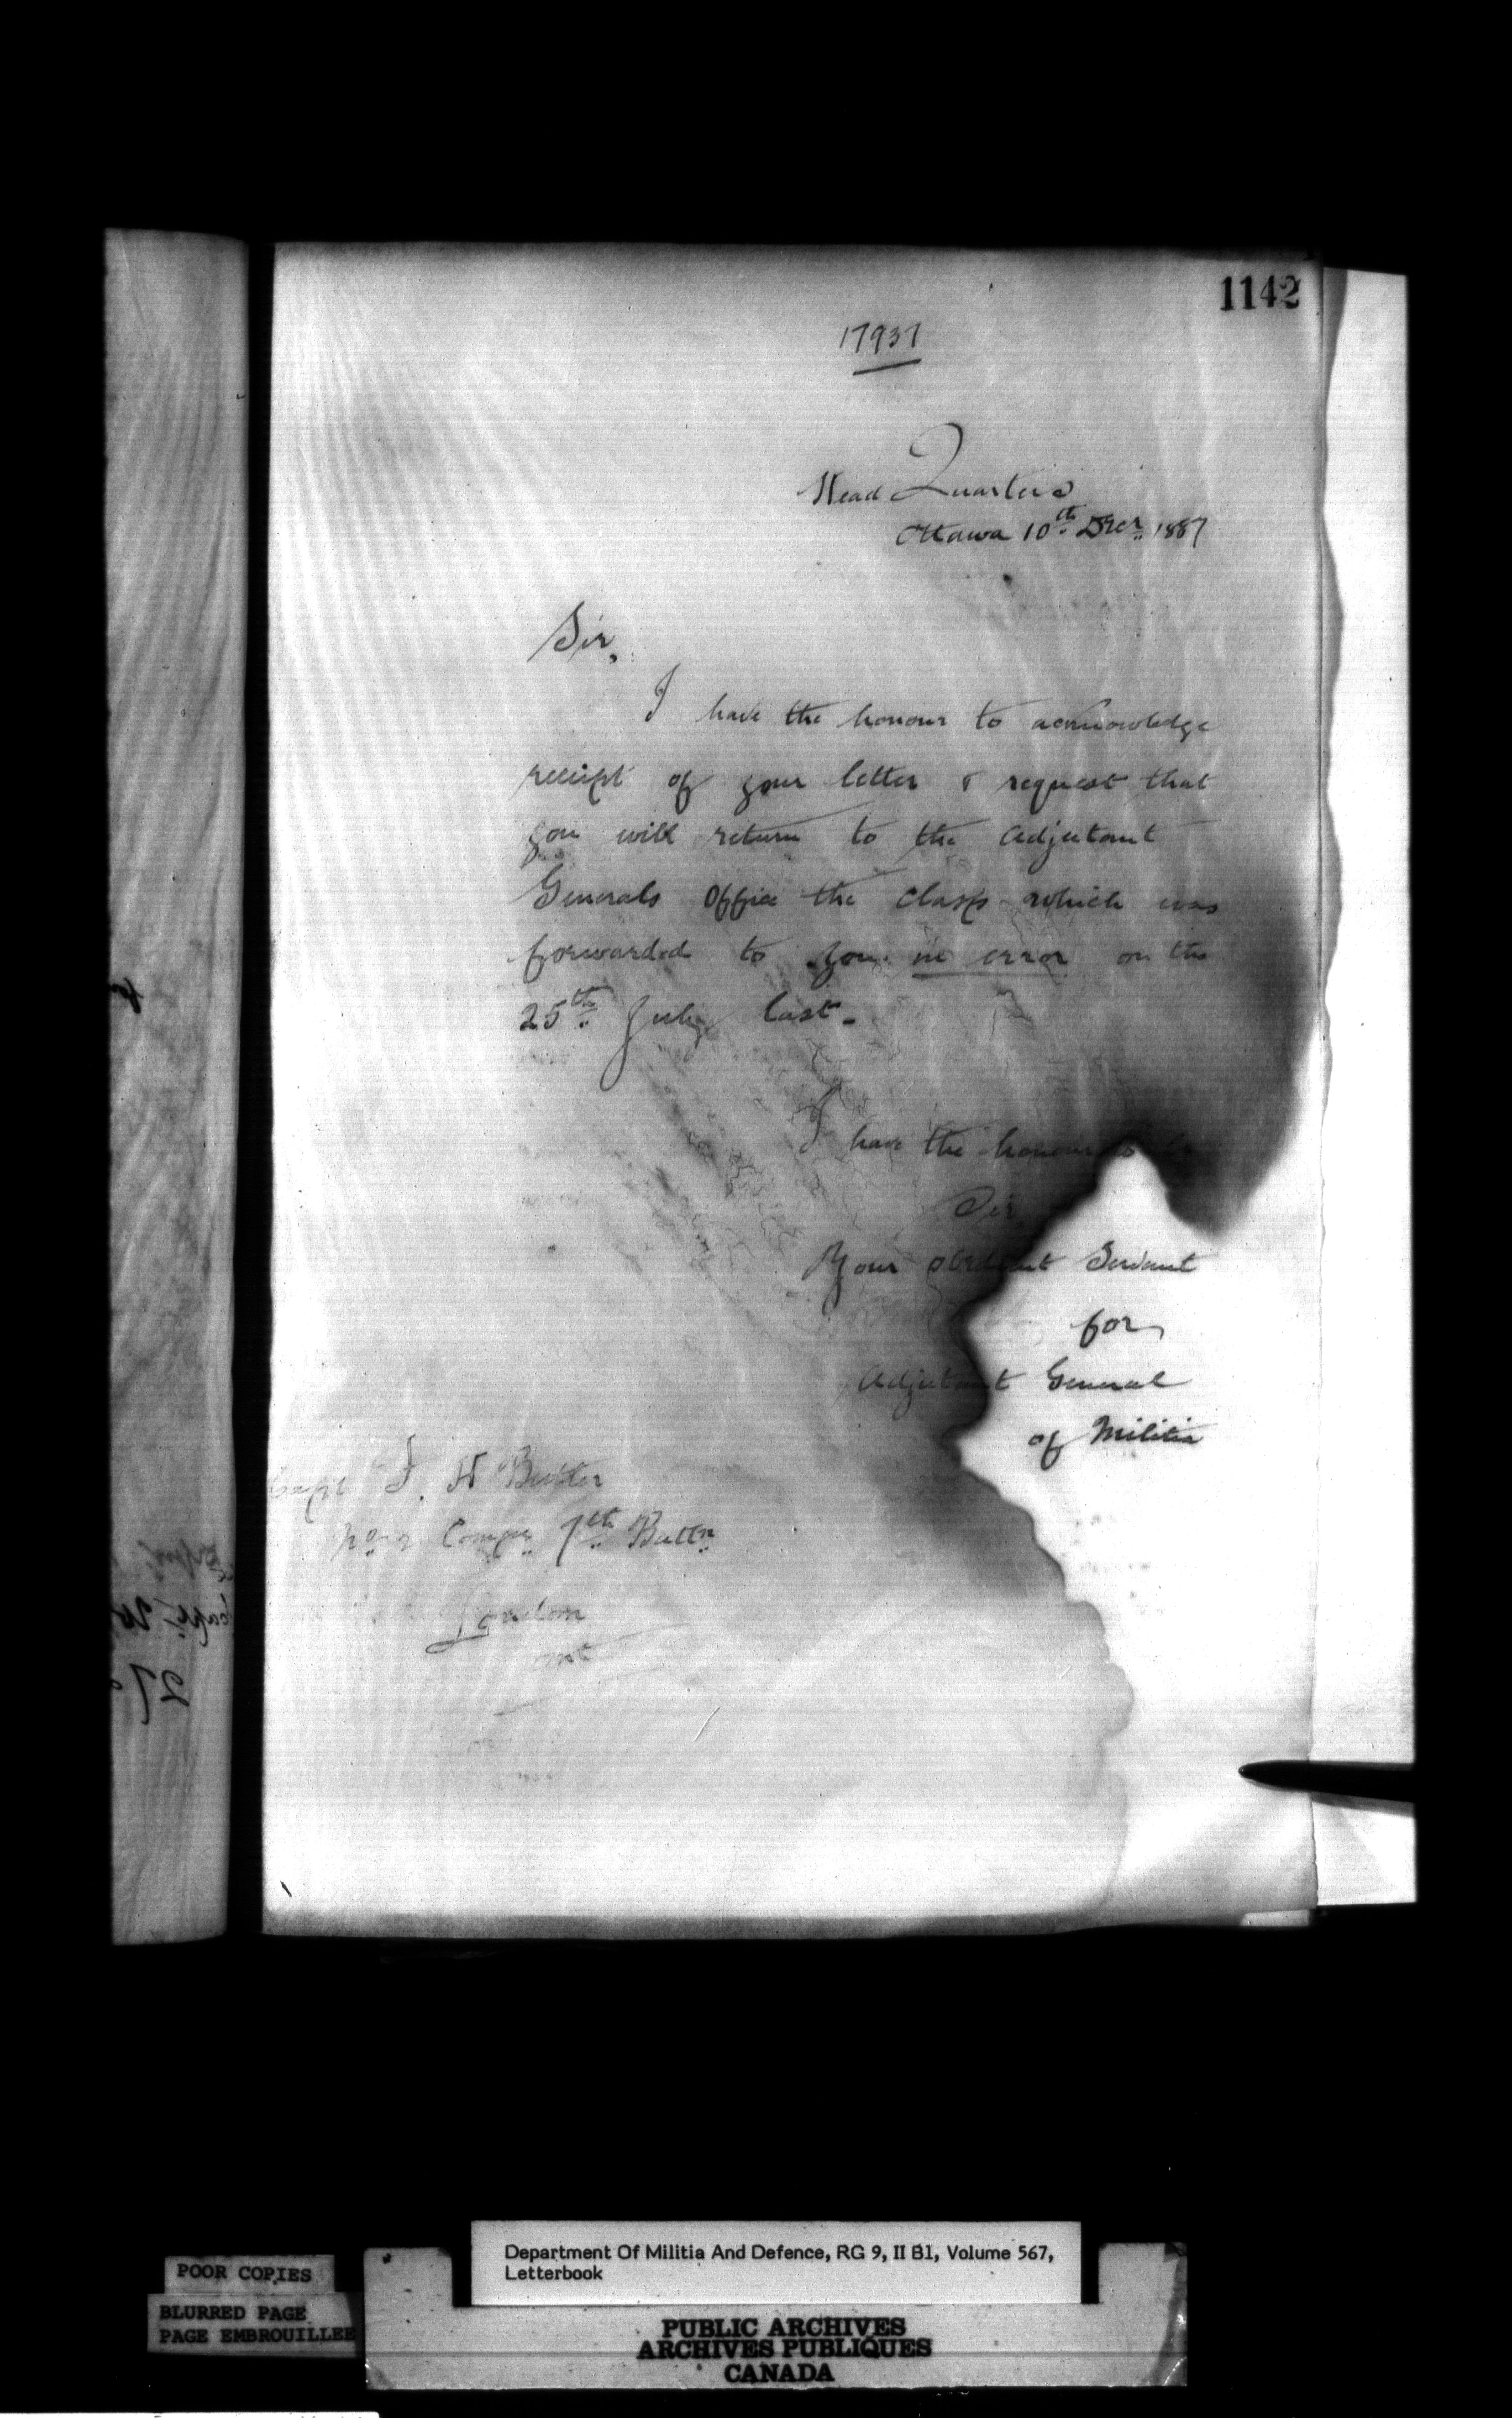 1142
17937
Head Quarters
Ottawa 10th Decr 1887
Sir,
I have the honour to acknowledge
receipt of your letter & request that
you will return to the Adjutant
Generals Office the clasp which was
forwarded to you in error on the
25th July last -
I have the honour to be
Sir,
Your obedient Servant
for
Adjutant General
of Militia
Capt H Butler
No 2 Compy 7th Battn
London
Ont
Department Of Militia And Defence, RG 9, II B1, Volume 567,
Letterbook
POOR COPIES
BLURRED PAGE
PAGE EMBROUILLEE
PUBLIC ARCHIVES
ARCHIVES PUBLIQUES
CANADA